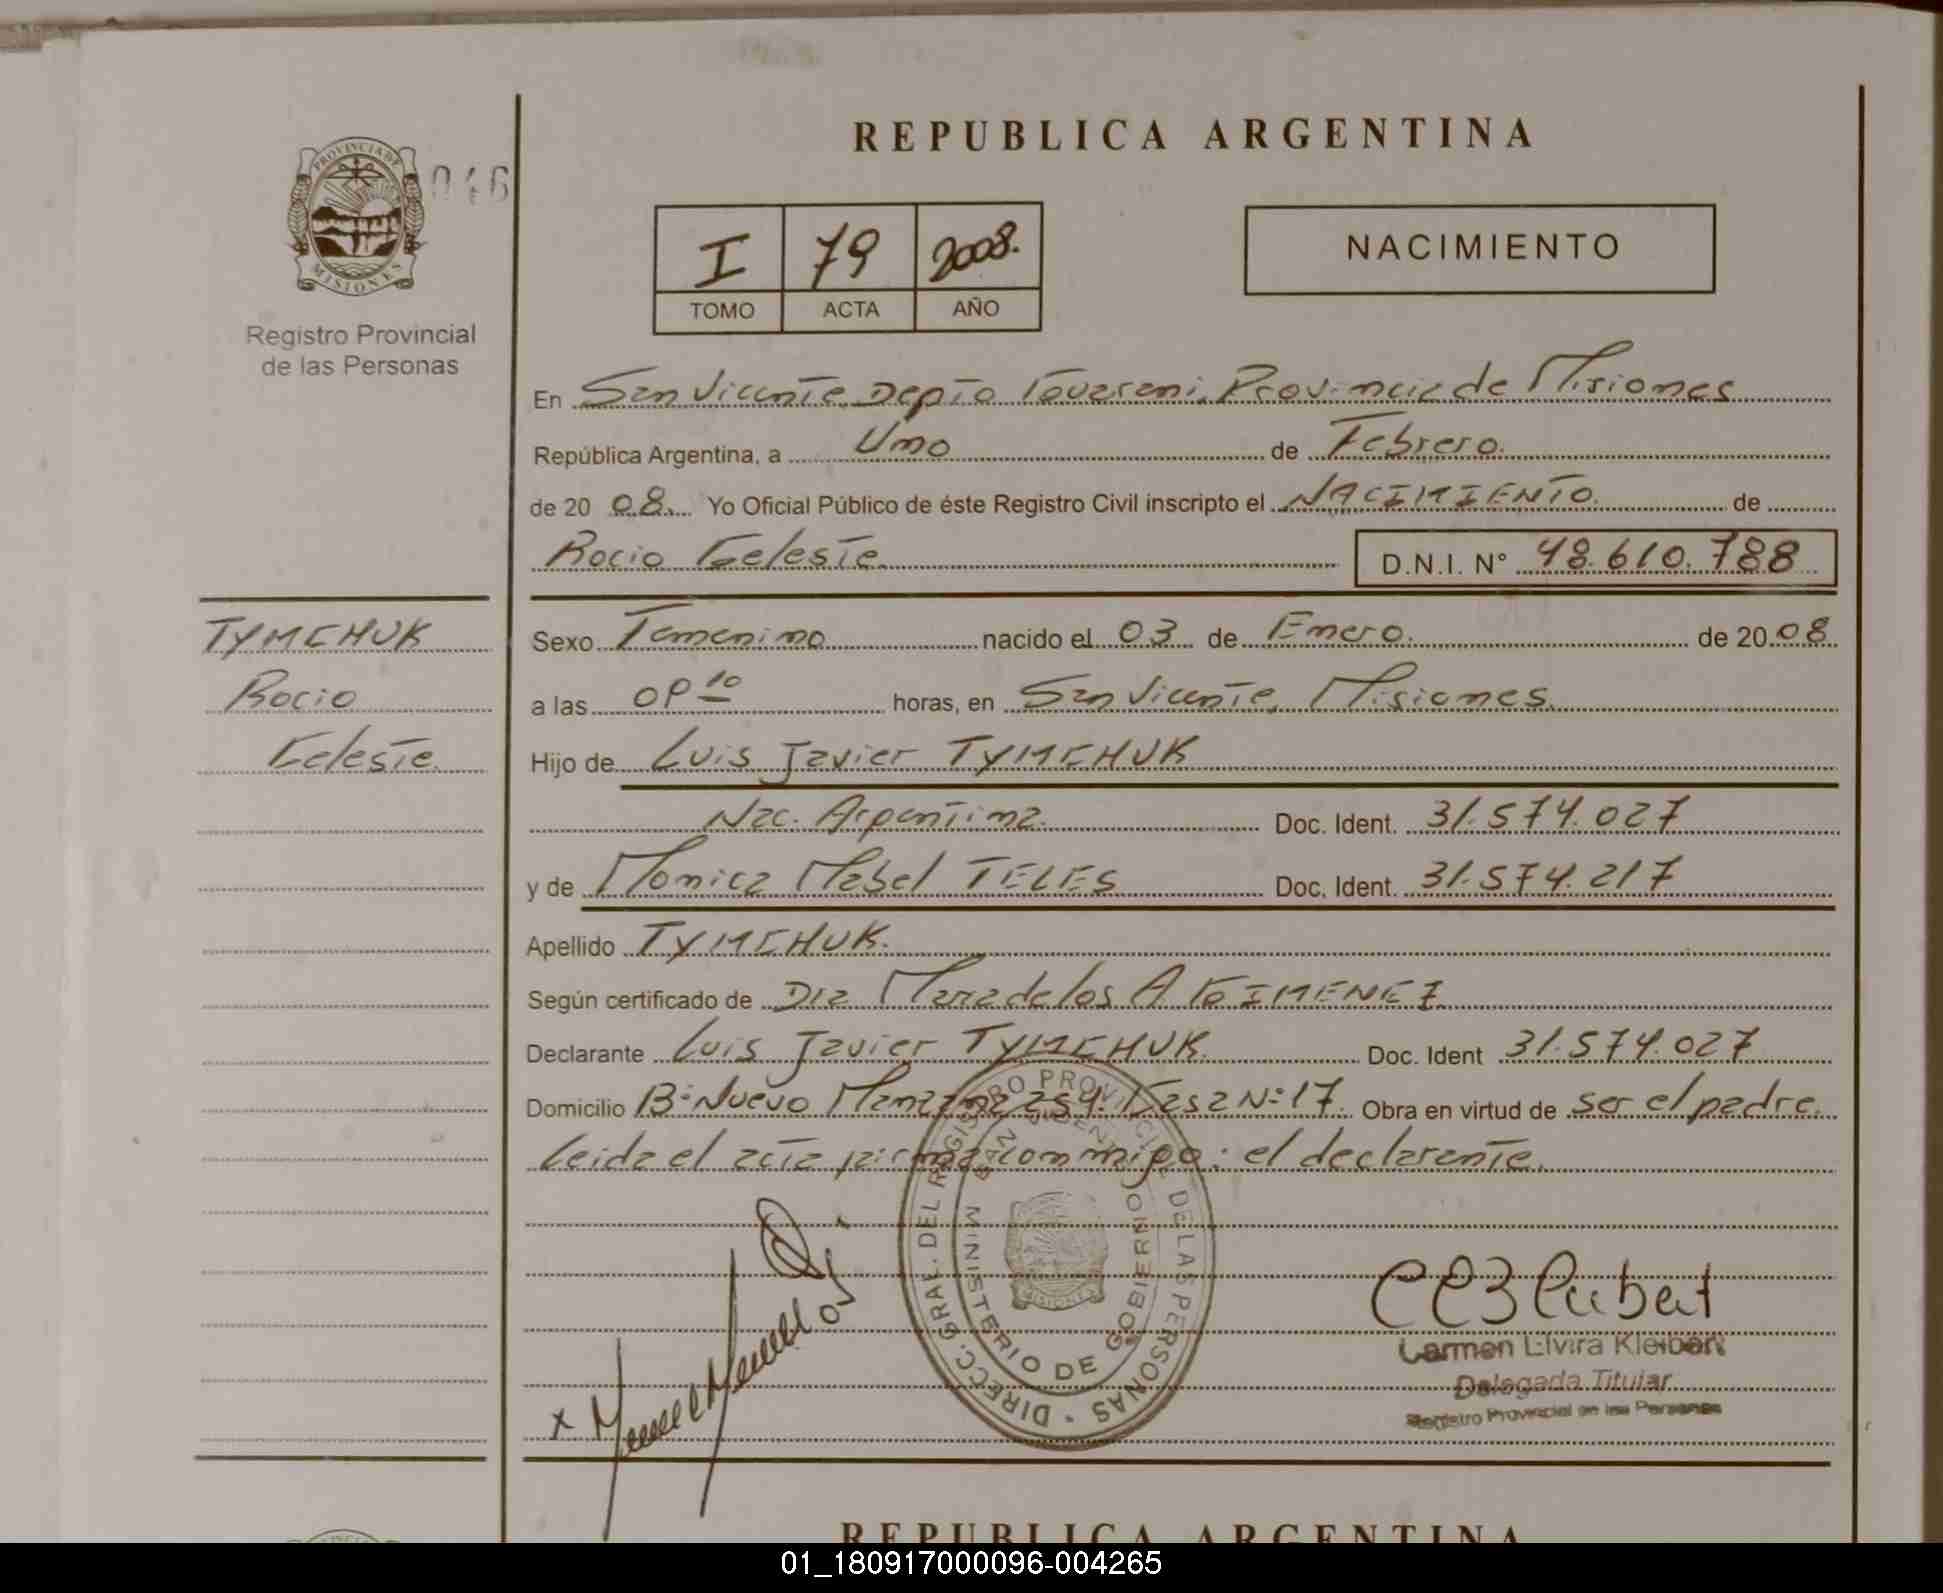 REPUBLICA ARGENTINA
PROVINCIA DE
MISIONES
046
Registro Provincial
de las Personas
I 79 2008.
TOMO ACTA AÑO
NACIMIENTO
En San Vicente Depto Guarani, Provincia de Misiones
República Argentina, a Uno de Febrero.
de 20 08. Yo Oficial Público de éste Registro Civil inscripto el NACIMIENTO. de
Rocio Celeste. D.N.I. N° 48.610.788
TYMCHUK
Rocio
Celeste.
Sexo Femenino nacido el 03 de Enero. de 20 08
a las 09 10 horas, en San Vicente, Misiones.
Hijo de Luis Javier TYMCHUK
Nac. Argentina. Doc. Ident. 31.574.027
y de Monica Mabel TELES Doc. Ident. 31.574.217
Apellido TYMCHUK.
Según certificado de Dra Maria de los A GIMENEZ
Declarante Luis Javier TYMCHUK. Doc. Ident 31.574.027
Domicilio B° Nuevo Manzana 254. Casa N° 17. Obra en virtud de ser el padre.
Leida el acta firma conmigo: el declarante.
DIRECC. GRAL. DEL REGISTRO PROVINCIAL DE LAS PERSONAS
MINISTERIO DE GOBIERNO
MISIONES
x
Carmen Elvira Kleibert
Delegada Titular
Registro Provincial de las Personas
REPUBLICA ARGENTINA
01_180917000096-004265